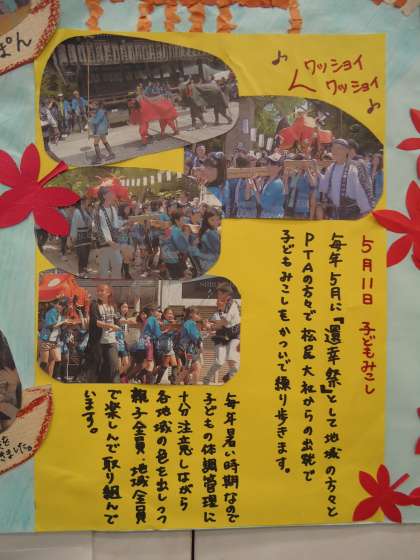 ワッショイ
ワッショイ
5月11日 子どもみこし
毎年5月に『還幸祭』として地域の方々と
PTAの方々で松尾大社からの出発で
子どもみこしをかついで練り歩きます。
毎年暑い時期なので
子どもの体調管理に
十分注意しながら
各地域の色を出しつつ
親子全員・地域全員
で楽しんで取り組んで
います。
ぽん